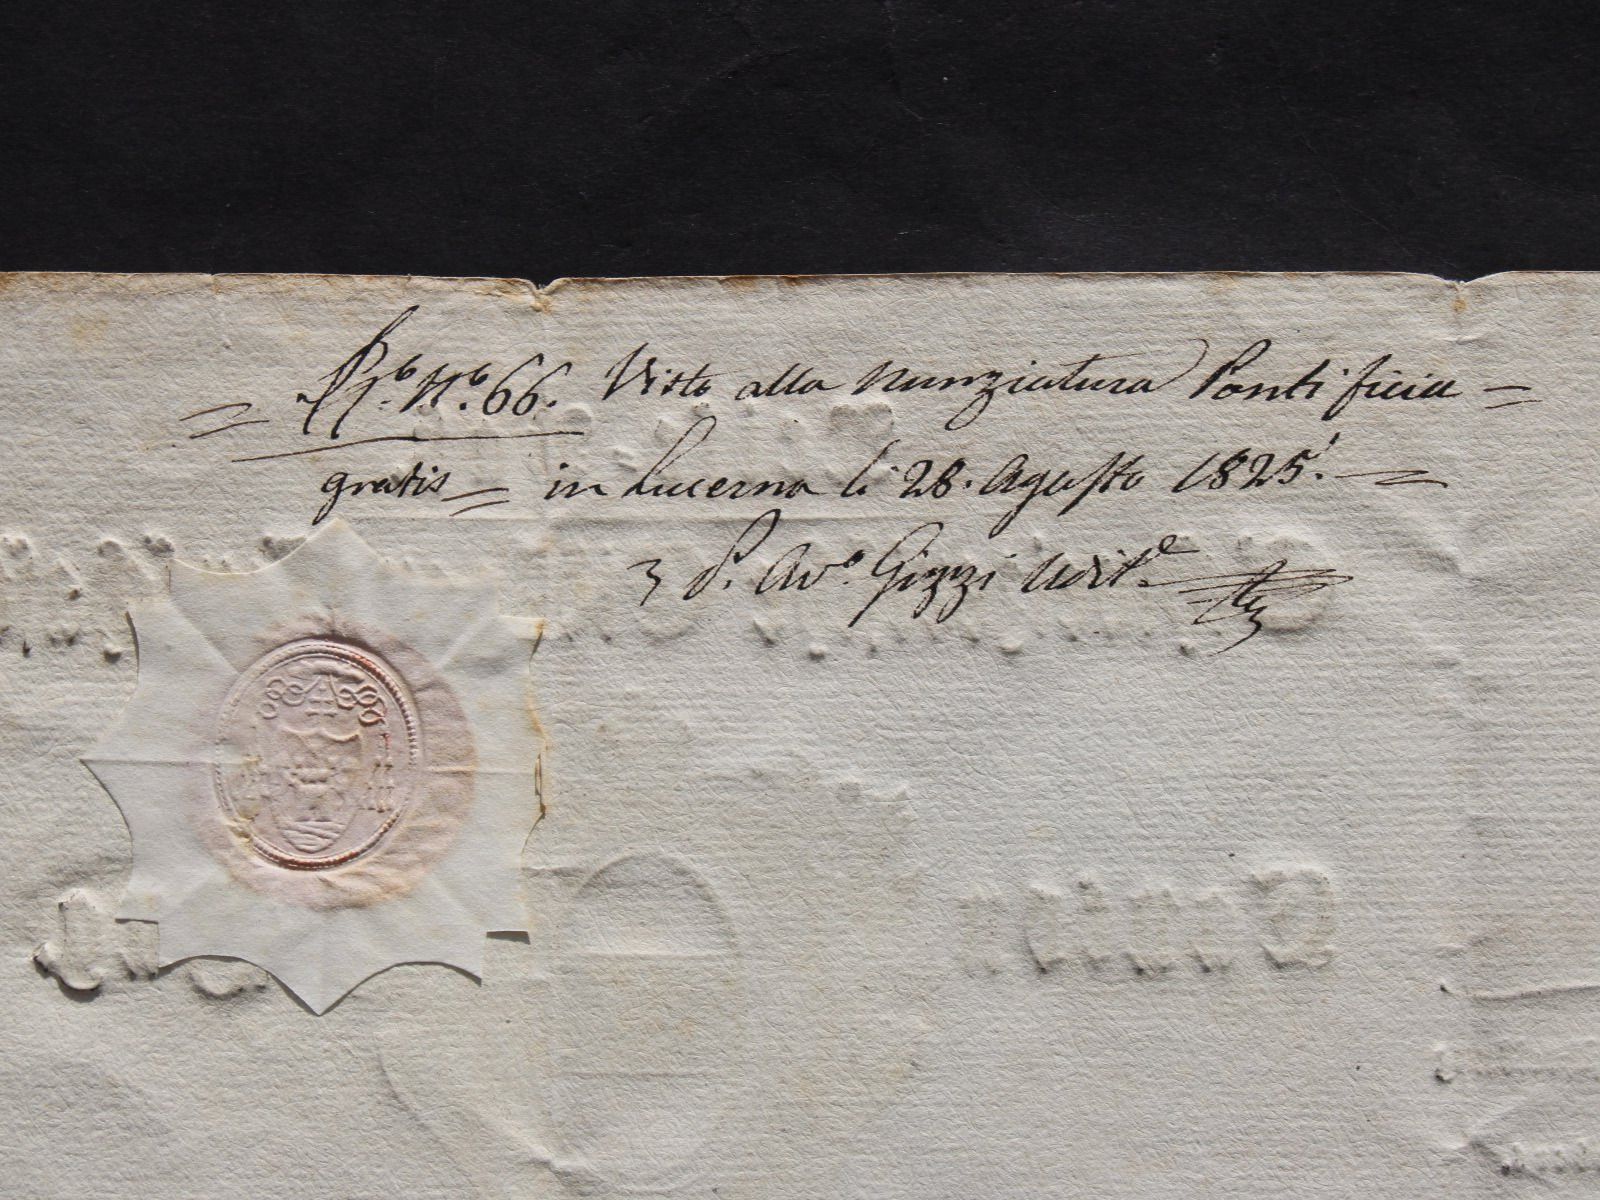 = Rº. Nº. 66. Visto alla Nunziatura Pontificia =
gratis = in Lucerna li 28. Agosto 1825. =
P. Avº. Gizzi Udit.e